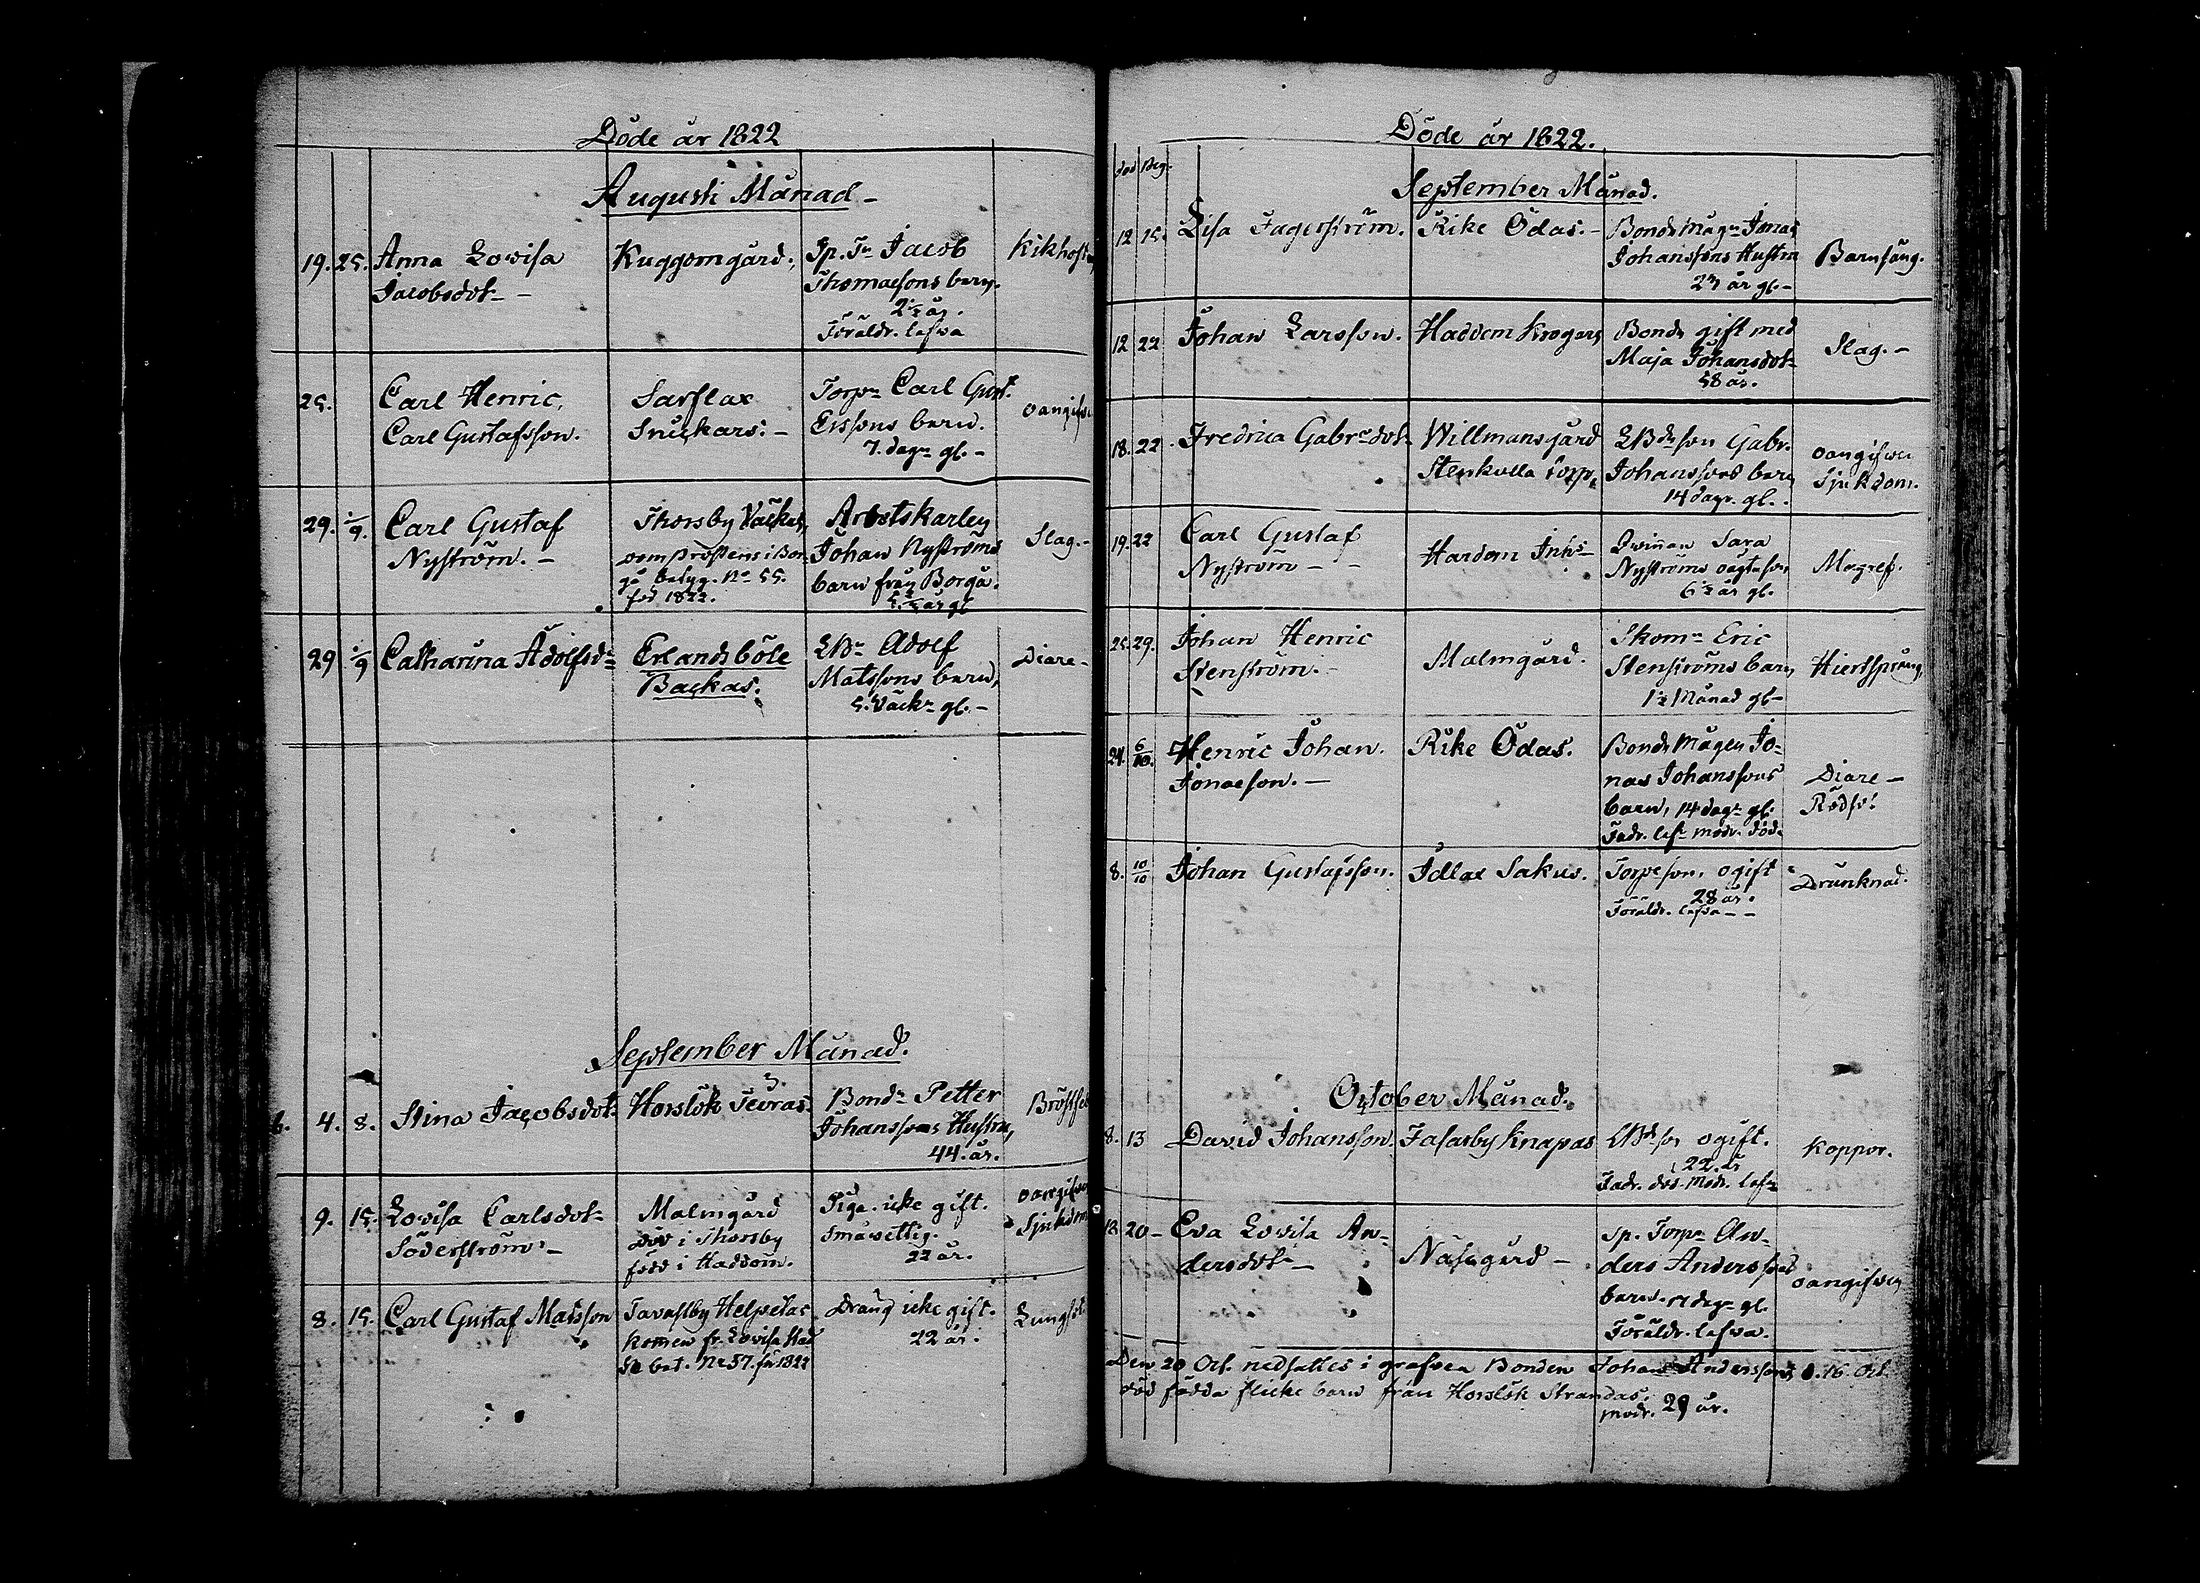 Döde år 1822
Augusti Månad -
19. 25. Anna Lovisa Kuggomgård. Sp. Tr Jacob Kikhosta
Jacobsdotr - Thomassons barn.
2½ år.
Föräldr. lefva
25. Carl Henric Sarflax Torpn Carl Gust. oangifven
Carl Gustafsson. Snickars. - Erssons barn.
7. dagr gl. -
29. 1/9. Carl Gustaf Thorsby Arbetskarlen Slag. -
Nyström. - Johan Nyströms
gå betyg. No 55. barn från Borgå.
1822. år gl
29 1/9 Catharina Adolfsdr Erlandsböle Adolf Diare -
Backas. Matssons barn,
5. Vackr gl. -
September Månad.
4. 8. Stina Jacobsdotr Horslök Bondn Petter
Johanssons Hustru,
44. år.
9. 15. Lovisa Carlsdotr Malmgård Piga. icke gift. oangifven
Söderström. - död i Thorsby Sjukdom
född i Haddom. 22 år.
8. 15. Carl Gustaf Matsson Tavastby Helpetas Dräng icke gift. Lungsot
komen fr. Lovisa Stad 22 år.
No 57. för 1822
Döde år 1822.
död Beg.
September Månad.
12 15. Lisa Fagerström. Rike Ödas. - Bonde Mågn Jonas Barnsäng.
Johanssons Hustru
23 år gl. -
12 22 Johan Larsson. Haddom Krogars Bondn gift med Slag. -
Maja Johansdotr
58 år.
18. 22. Fredrica Gabrsdotr Willmansgård Gabr. oangifven
Stenkulla torp. Johanssons barn Sjukdom.
14 dagr. gl.
19. 22 Carl Gustaf Hardom Qvinnan Sara Magref.
Nyström - - Nyströms oägta son
6½ år gl.
25. 29. Johan Henric Malmgård. Skomr Eric Hiertsprång
Stenström. - Stenströms barn,
1½ Månad gl -
24. 6/10. Henric Johan Rike Ödas. Bonde Mågen Jo= Diare -
Jonasson. - nas Johanssons Rödso!
barn, 14 dagr gl.
Fadr. lefr modr. död.
8. 10/10 Johan Gustafsson. Idlax Sakus. Torpeson. ogift Drunknad.
28 år.
Föräldr. lefva - -
October Månad.
8. 13 David Johansson. Fasarby Knapas ogift. Koppor.
22. år
Fadr. död. Modr. lefr
13. 20 - Eva Lovisa An= Näsegård - Sp. Torpn An= oangifven
dersdotr - ders Anderssons
barn. dagr gl.
Föräldr. lefva.
Den 20 Oct. nedsattes i grafven Bonden Johan Anderssons d. 16. Oct.
död födda flicke barn från Horslök Strandas.
modr. 29 år.